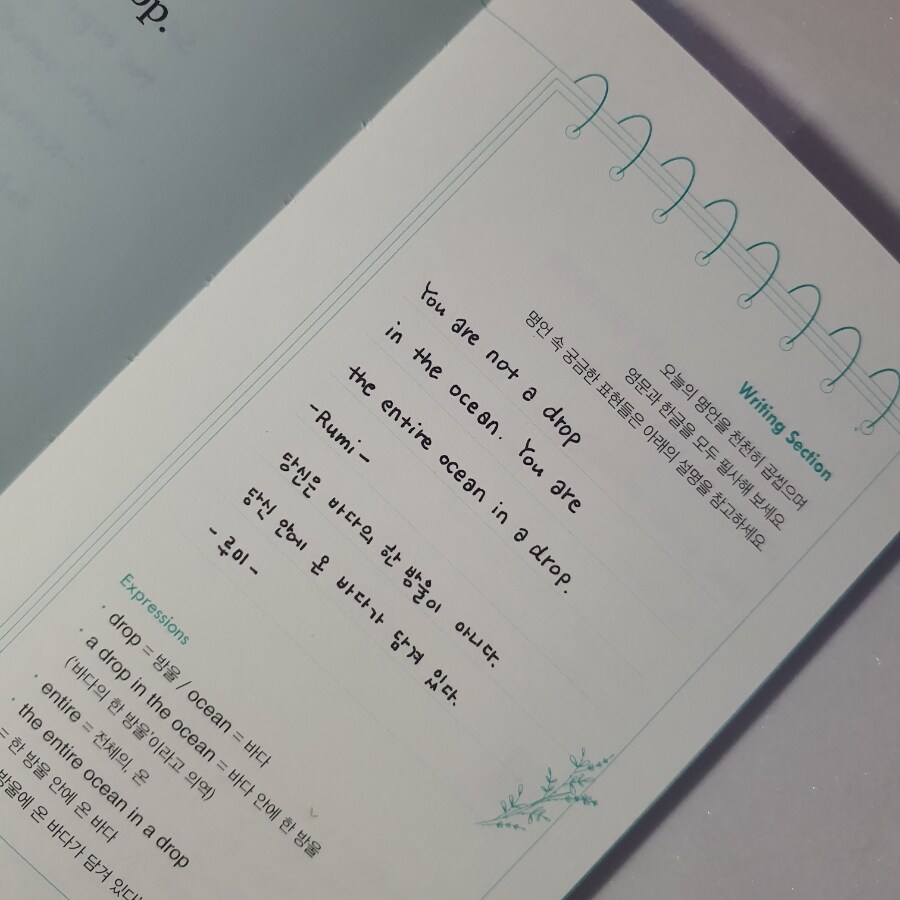 op.
Writing Section
오늘의 명언을 천천히 곱씹으며
영문과 한글을 모두 필사해 보세요.
명언 속 궁금한 표현들은 아래의 설명을 참고하세요.
You are not a drop
in the ocean. You are
the entire ocean in a drop.
-Rumi-
당신은 바다의 한 방울이 아니다.
당신 안에 온 바다가 담겨 있다.
-루미-
Expressions
• drop = 방울 / ocean = 바다
• a drop in the ocean = 바다 안에 한 방울
('바다의 한 방울'이라고 의역)
• entire = 전체의, 온
• the entire ocean in a drop
= 한 방울 안에 온 바다
방울에 온 바다가 담겨 있다